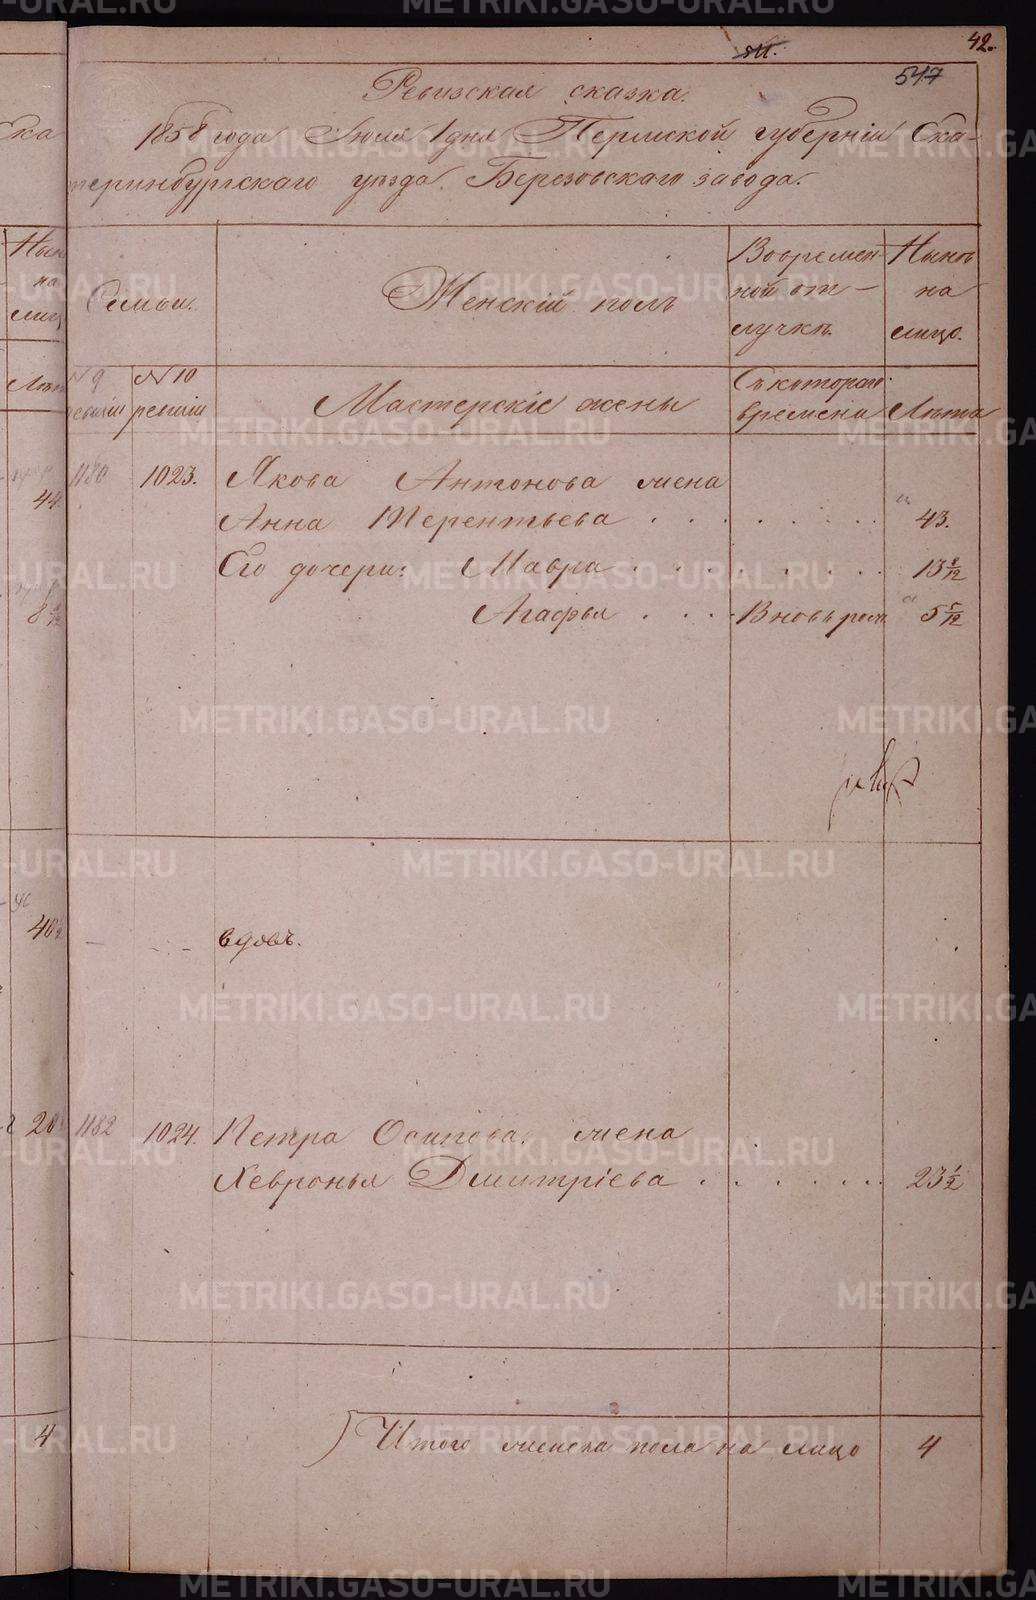 42.
511.
547
Ревизская сказка.
1858 года Июля 1 дня Пермской губерніи Ека-
теринбургскаго уѣзда. Березовскаго завода.
Семьи.
Женскій полъ
Во времен-
ной от-
лучкѣ.
Нынѣ
на
лицо.
№ 9
ревизіи
№ 10
ревизіи
Мастерскіе жены
Съ котораго
времени
Лѣта
1180 1023. Якова Антонова жена
44 Анна Терентьева . . . . . . . . 43.
Его дочери: Мавра . . . . . . . . 13 2/12
8 Агафья . . . Вновь рож. 5 5/12
40 1/2 вдовъ.
20 1182 1024. Петра Осипова, жена
Хевронья Дмитріева . . . . . . 23 1/2
4 Итого женска пола на лицо 4
METRIKI.GASO-URAL.RU